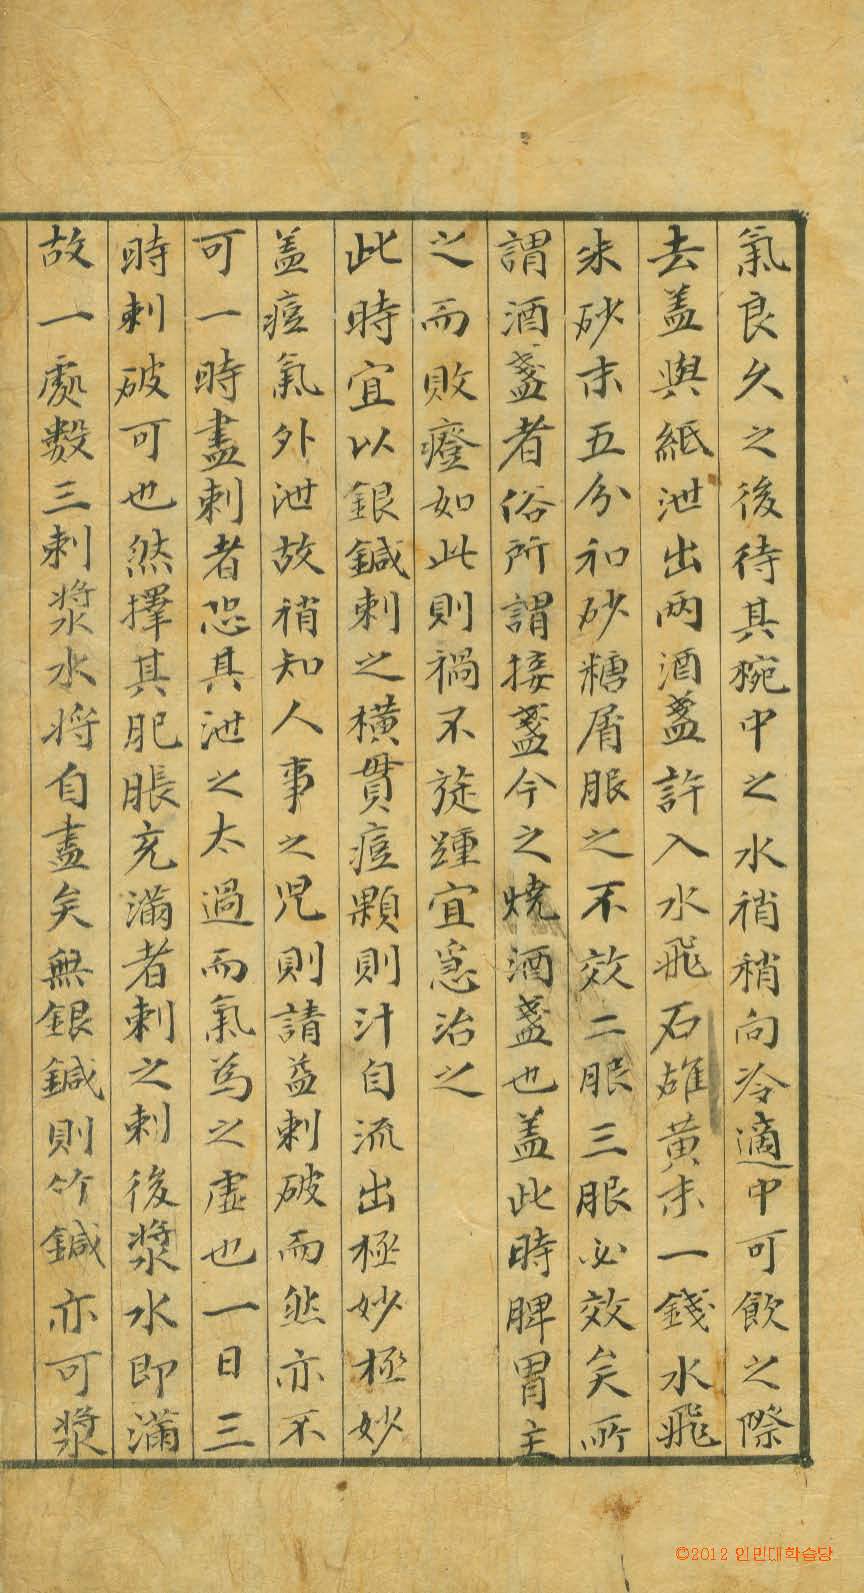 氣良久之後待其椀中之水稍稍向冷適中可飮之際
去盖與紙泄出兩酒盞許入水飛石雄黃末一錢水飛
朱砂末五分和砂糖屑服之不效二服三服必效矣所
謂酒盞者俗所謂接盞今之燒酒盞也盖此時脾胃主
之而敗癈如此則禍不旋踵宜急治之
此時宜以銀鍼刺之橫貫痘顆則汁自流出極妙極妙
盖痘氣外泄故稍知人事之児則請益刺破而然亦不
可一時盡刺者恐其泄之太過而氣爲之虛也一日三
時刺破可也然擇其肥脹充滿者刺之刺後漿水即滿
故一處數三刺漿水將自盡矣無銀鍼則竹鍼亦可漿
©2012 인민대학습당